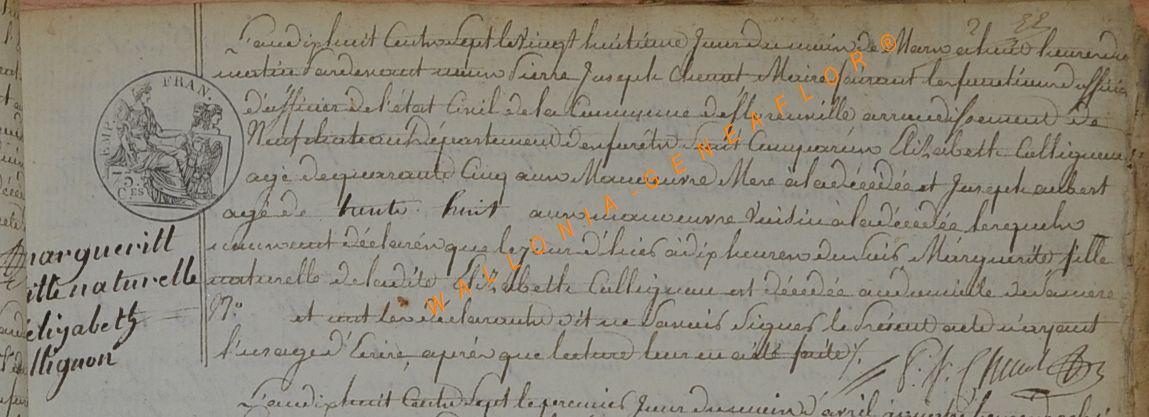 L'an dix huit Cents Sept le vingt huitième Jour du mois de Mars a huit heures du
matin Pardevant nous Pierre Joseph Chenot Maire faisant les fonctions d'officier
d'officier de l'état Civil de la Commune de florenville arrondissement de
Neufchateau Département des forêts Sont Comparus Elizabette Collignon
agé de quarante Cinq ans Manouvre Mere à la décédée et Joseph aubert
agé de trente huit ans manouvre Voisin à la décédée lesquels
nous ont déclarés que le jour d'hier à dix heures du Soir Marguerite fille
naturelle de ladite Elizabette Collignon est décédée au domicile de sa mere
et ont les declarants dit ne Savoir Signer le présent acte n'ayant
l'usage d'Ecrire, après que lecture leur en a été faite
P. J. Chenot
L'an dix huit Cents Sept le premier Jour du mois d'avril
marguerite
fille naturelle
elizabeth
llignon
EMP. FRAN.
WALLONIA-GENEAFLOR®